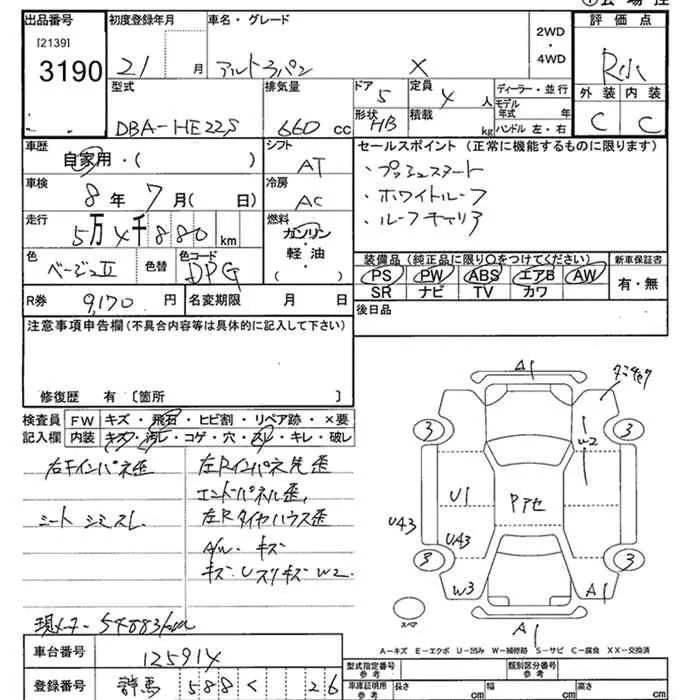 出品番号 初度登録年月 車名・グレード 2WD・4WD 評価点
[2139]
3190 21 月 アルトラパン X R小
型式 排気量 ドア 5 定員 4 人 ディーラー・並行 外装 内装
DBA-HE22S 660 cc 形状 HB 積載 kg モデル年式 年 ハンドル 左・右 C C
車歴 自家用・( ) シフト AT セールスポイント (正常に機能するものに限ります)
車検 8年 7月( 日) 冷房 AC ・プッシュスタート
・ホワイトルーフ
走行 5万4千880km 燃料 ガソリン・軽油・( ) ・ルーフキャリア
色 ベージュII 色替 色コード DPG 装備品 (純正品に限り○をつけてください) 新車保証書
PS PW ABS エアB AW 有・無
SR ナビ TV カワ
R券 9,170 円 名変期限 月 日 後日品
注意事項申告欄(不具合内容等は具体的に記入して下さい)
修復歴 有 [箇所 ]
検査員記入欄 FW キズ・飛石・ヒビ割・リペア跡・×要
内装 キズ・汚レ・コゲ・穴・スレ・キレ・破レ
右Fインパネ歪 左Rインパネ先歪
エンドパネル歪
シート シミスレ 左Rタイヤハウス歪
A/W キズ
キズ・Uスリキズ W2
現メーター 54883km
車台番号 125914
登録番号 群馬 588 く 26
A1
3 3
W2
U1 Pアセ
U43
U43
3 3
W3 A1
スペア A1
A-キズ E-エクボ U-凹み W-補修跡 S-サビ C-腐食 XX-交換済
型式指定番号 参考 類別区分番号 参考
車庫証明用 参考 長さ cm 幅 cm 高さ cm